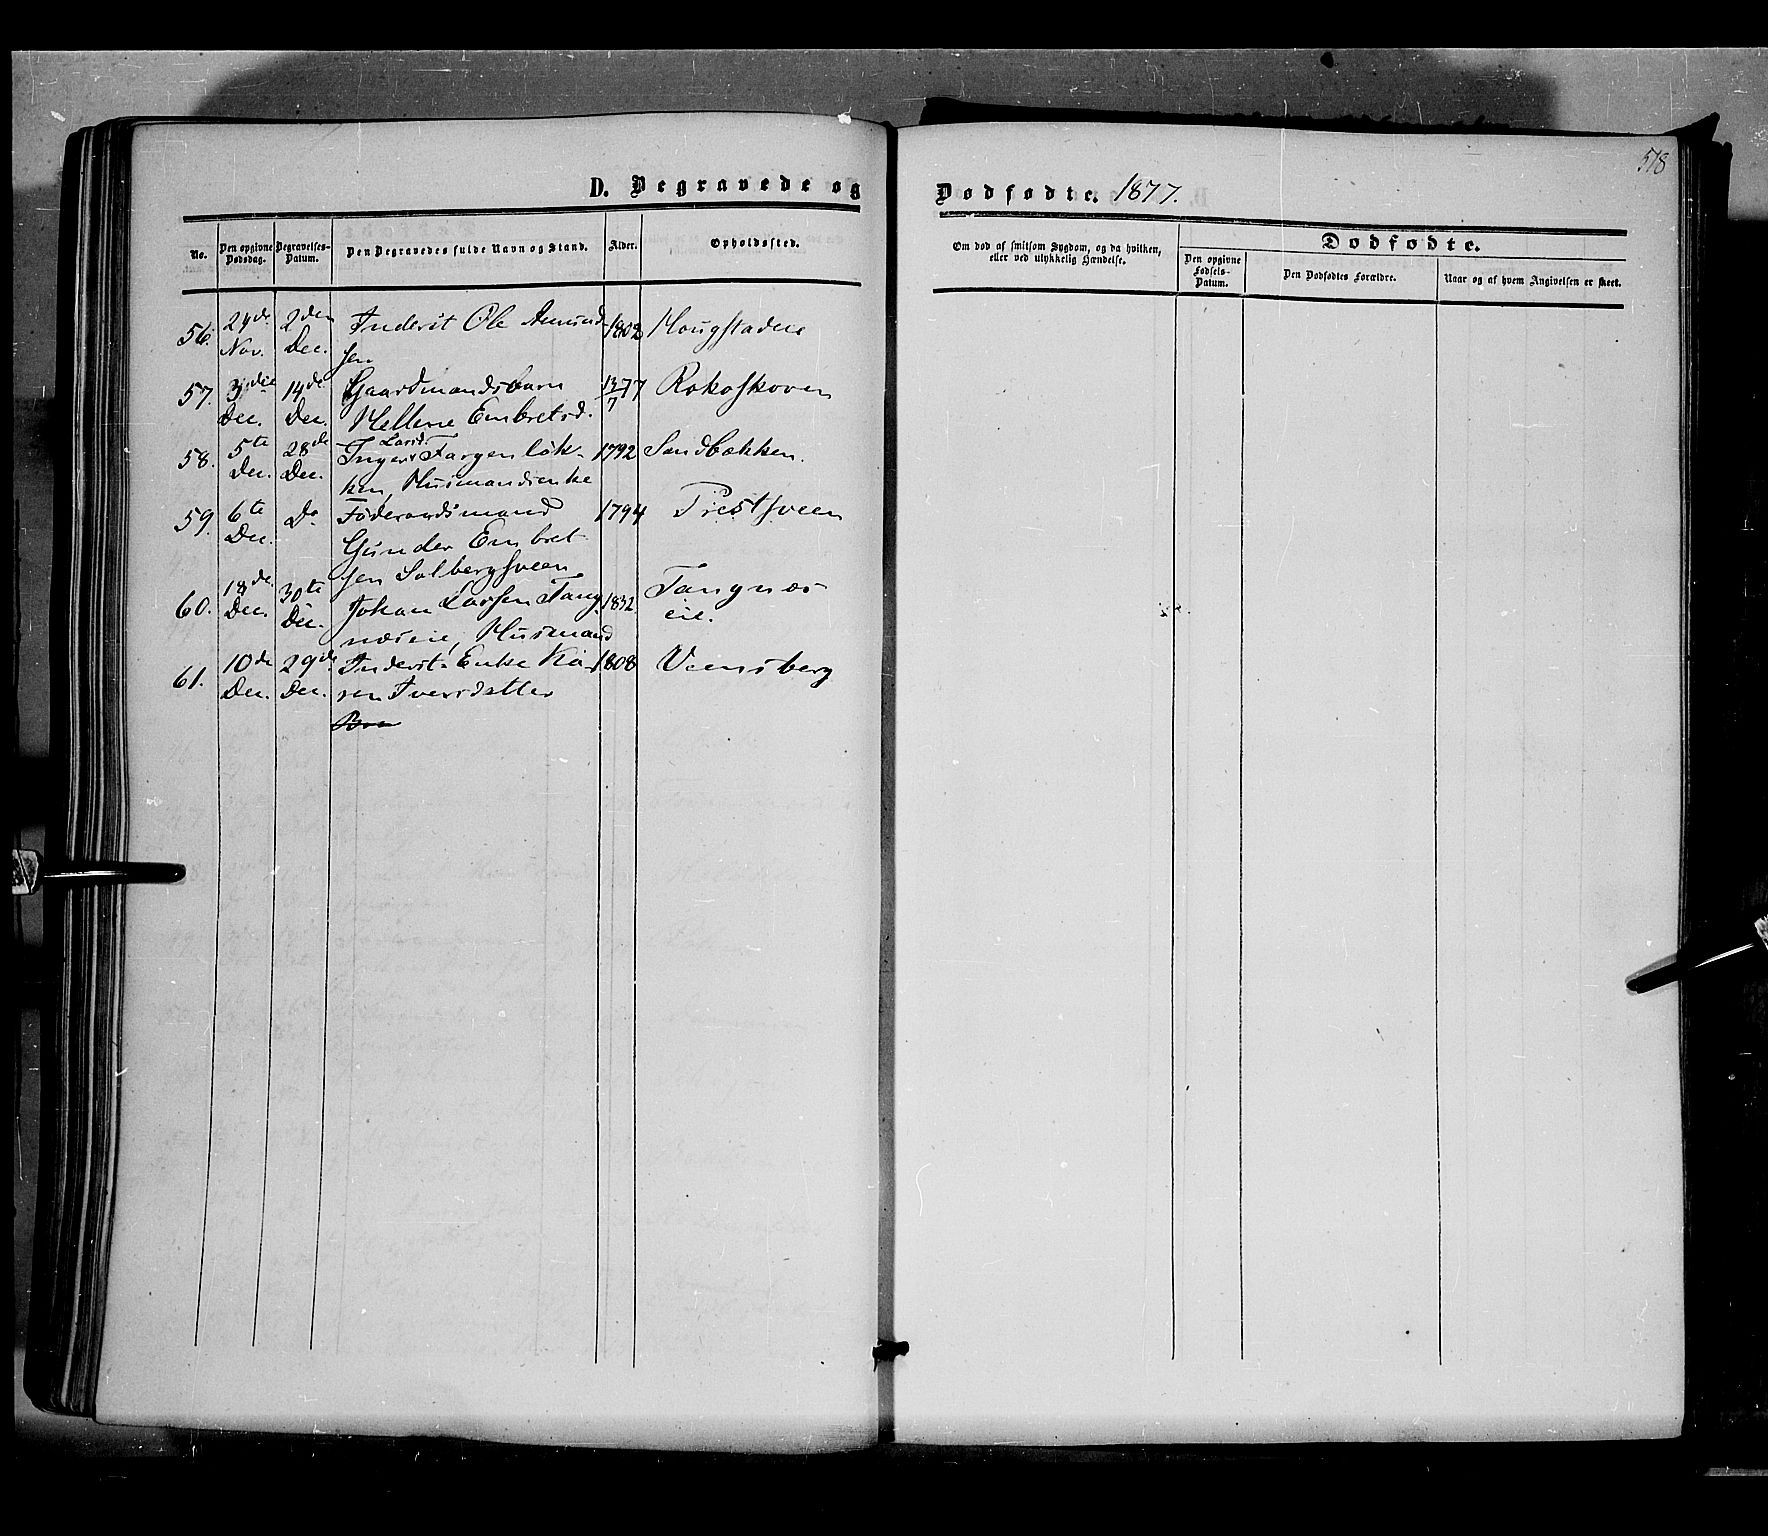 578
D. Begravede og
Dødfødte. 1877.
No.
Den opgivne Dødsdag.
Begravelses-Datum.
Den Begravedes fulde Navn og Stand.
Alder.
Opholdssted.
Om død af smitsom Sygdom, og da hvilken, eller ved ulykkelig Hændelse.
Dødfødte.
Den opgivne Fødsels-Datum.
Den Dødfødtes Forældre.
Naar og af hvem Angivelsen er skeet.
56. 29de 2den Inderst Ole Amund- 1802 Hougstadeie
Nov. Dec. sen
57. 3die 14de Gaardmandsbarn 13/7 77 Rokoskoven
Dec. Dec. Hellene Embretsd.
58. 5te 28de Inger Larsd. Fargenløk- 1792 Sandbækken.
Dec. Dec. ken, Husmandsenke
59. 6te Do Føderaadsmand 1794 Prestsveen
Dec. Gunder Embret-
sen Solbergsveen
60. 18de 30te Johan Larsen Tang- 1832 Tangnæs-
Dec. Dec. næseie, Husmand eie.
61. 10de 29de Inderst. Enke Ka- 1808 Veensberg
Dec. Dec. ren Iversdatter